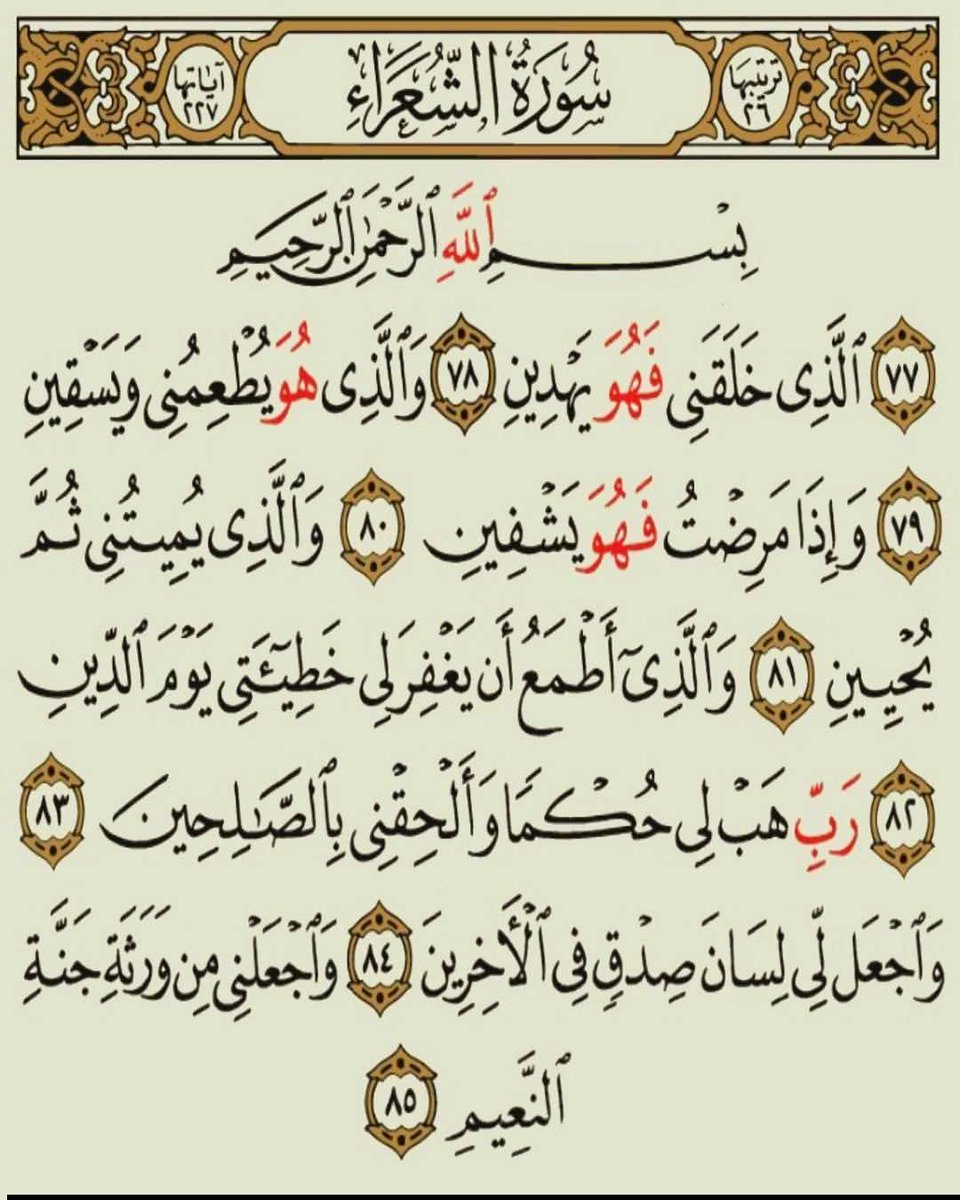 ترتيبها ٢٦ سُورَةُ الشُّعَرَاءِ آيَاتها ٢٢٧
بِسْمِ ٱللَّهِ ٱلرَّحْمَٰنِ ٱلرَّحِيمِ
٧٧ ٱلَّذِى خَلَقَنِى فَهُوَ يَهْدِينِ ٧٨ وَٱلَّذِى هُوَ يُطْعِمُنِى وَيَسْقِينِ
٧٩ وَإِذَا مَرِضْتُ فَهُوَ يَشْفِينِ ٨٠ وَٱلَّذِى يُمِيتُنِى ثُمَّ
يُحْيِينِ ٨١ وَٱلَّذِىٓ أَطْمَعُ أَن يَغْفِرَ لِى خَطِيٓـَٔتِى يَوْمَ ٱلدِّينِ
٨٢ رَبِّ هَبْ لِى حُكْمًا وَأَلْحِقْنِى بِٱلصَّـٰلِحِينَ ٨٣
وَٱجْعَل لِّى لِسَانَ صِدْقٍ فِى ٱلْأَخِرِينَ ٨٤ وَٱجْعَلْنِى مِن وَرَثَةِ جَنَّةِ
ٱلنَّعِيمِ ٨٥